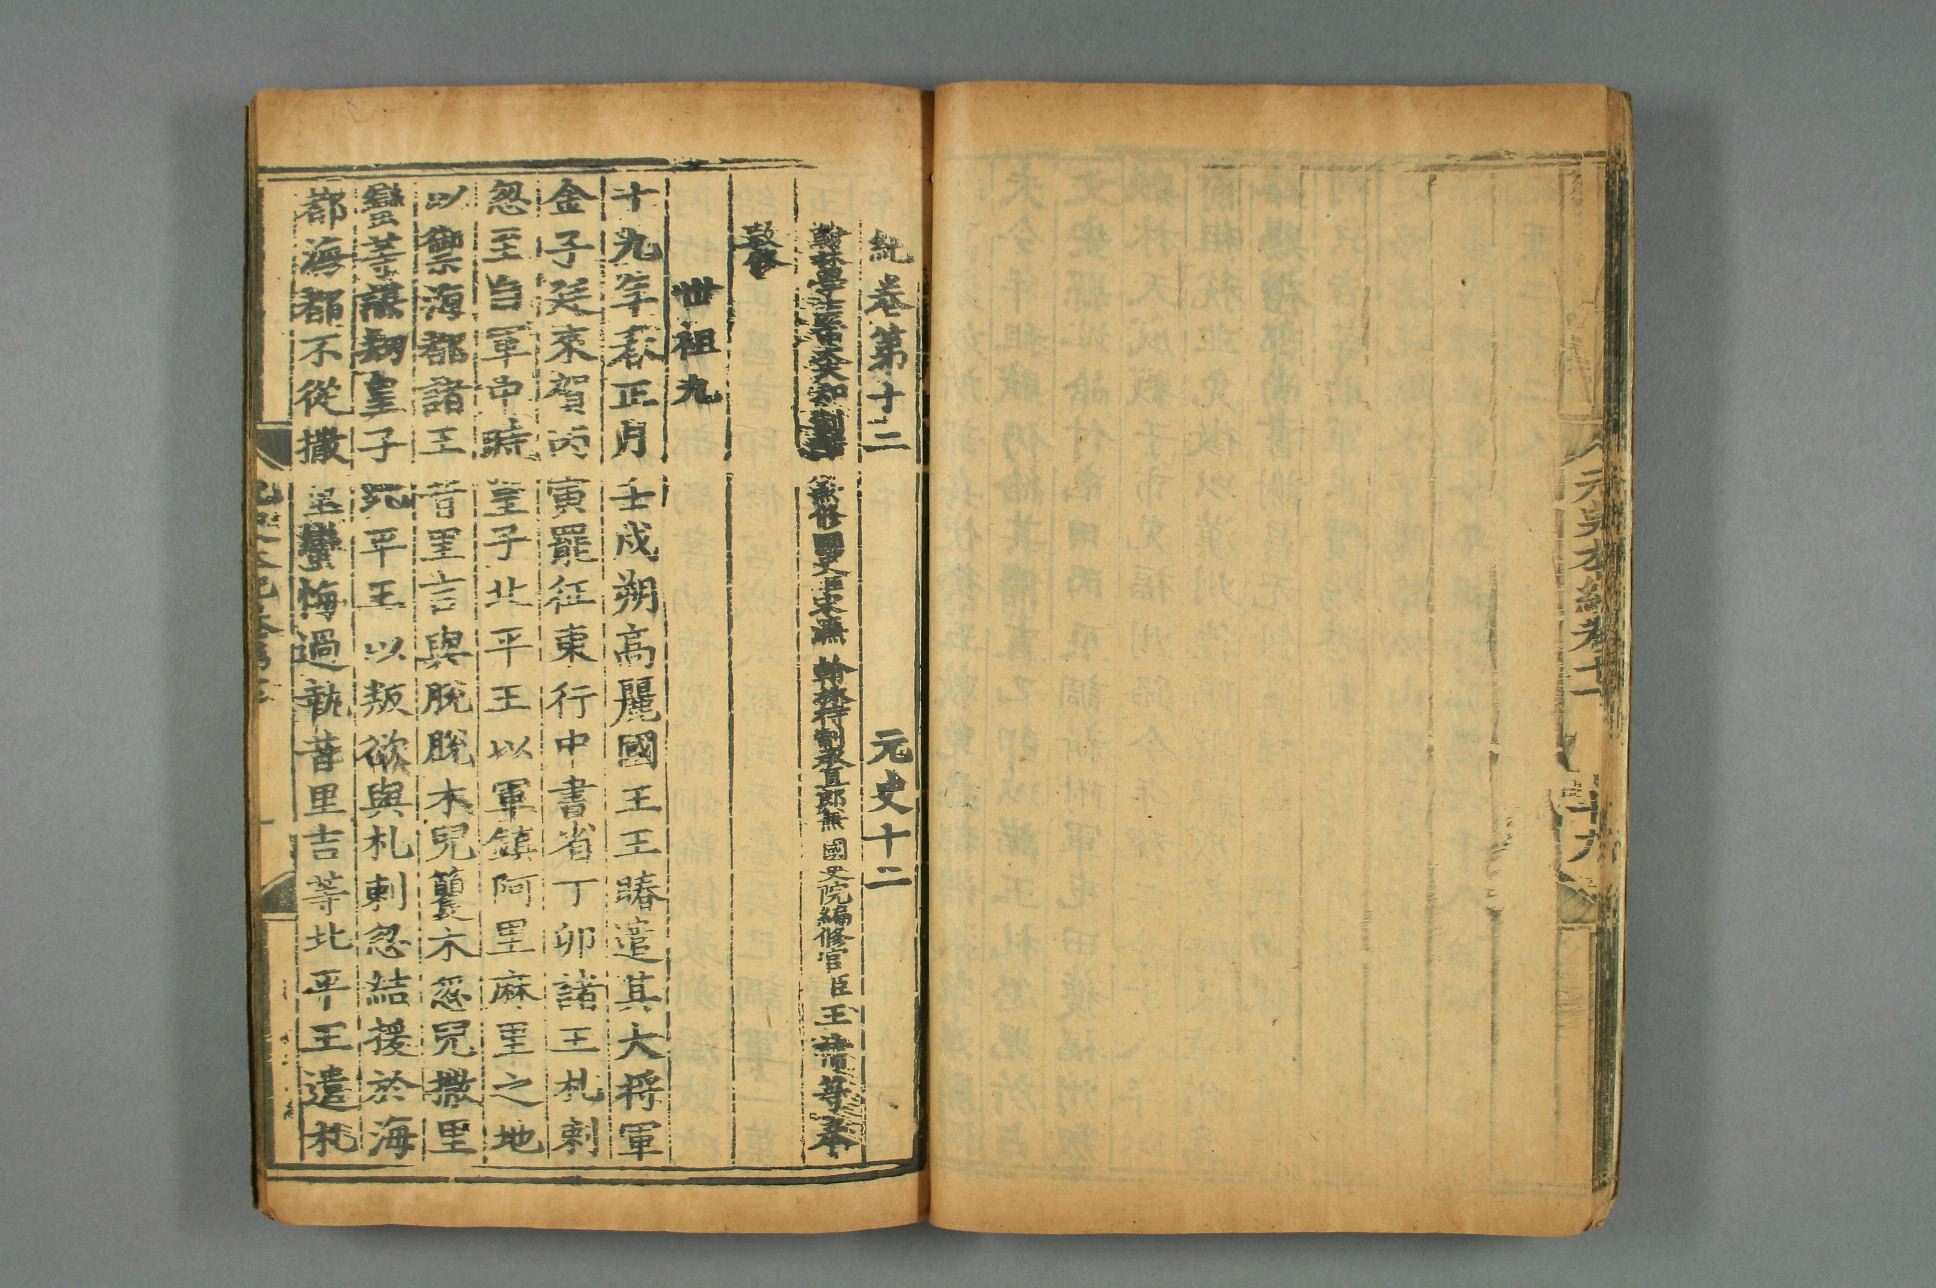 元史本紀卷十一
紀卷第十二 元史十二
翰林學士亞中大夫知制誥兼修國史臣宋濂 翰林待制承直郎兼國史院編修官臣王禕等奉
敕修
世祖九
十九年春正月壬戌朔高麗國王王賰遣其大將軍
金子廷來賀丙寅罷征東行中書省丁卯諸王札剌
忽至自軍中時皇子北平王以軍鎮阿里麻里之地
以禦海都諸王昔里吉與脫脫木兒籛木忽兒撒里
蠻等謀劫皇子北平王以叛欲與札剌忽結援於海
都海都不從撒里蠻悔過執昔里吉等北平王遣札